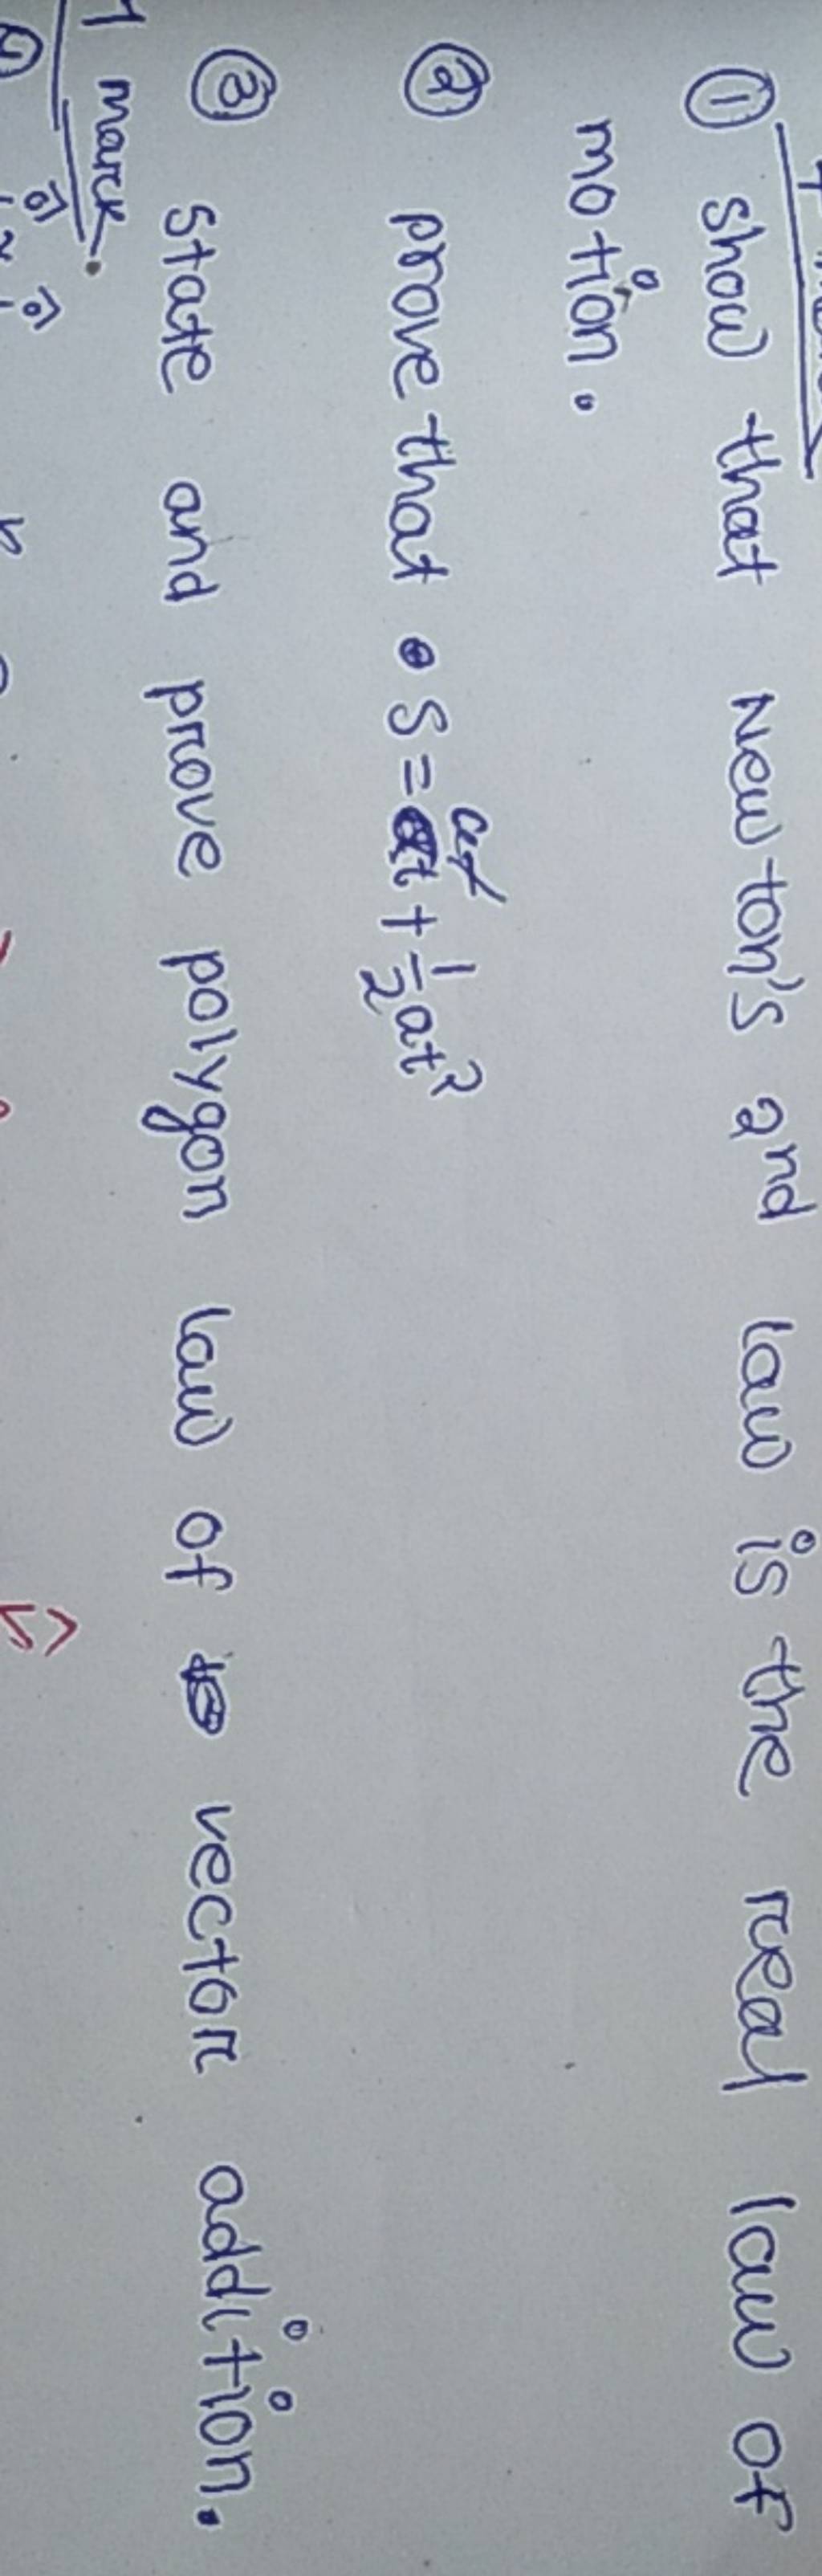 ① show that Newton's 2nd law is the real law of
motion.
② prove that S = ut + 1/2 at²
③ state and prove polygon law of vector addition.
1 marck.